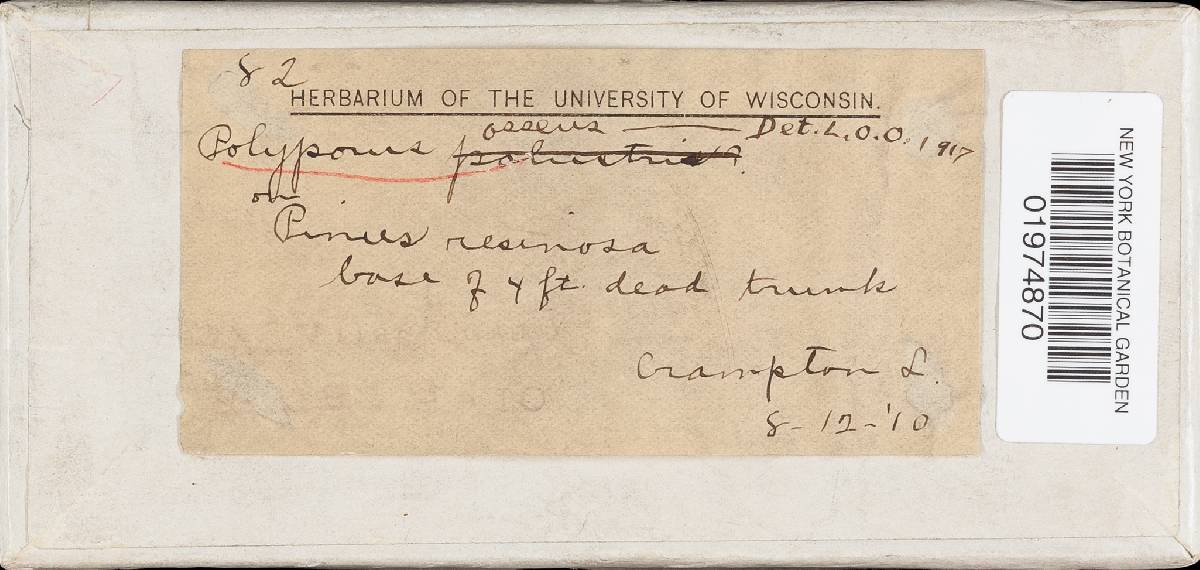 82
HERBARIUM OF THE UNIVERSITY OF WISCONSIN.
osseus — Det. L.O.O. 1917
Polyporus palustris?
on
Pinus resinosa
base of 4 ft. dead trunk
Crampton L.
8-12-'10
NEW YORK BOTANICAL GARDEN
01974870